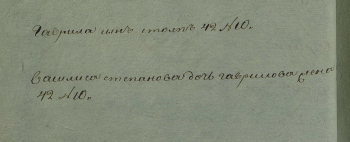 Гаврила сынъ степпъ 42 №10.
Василиса степанова дочь гаврилова жена
42 №10.